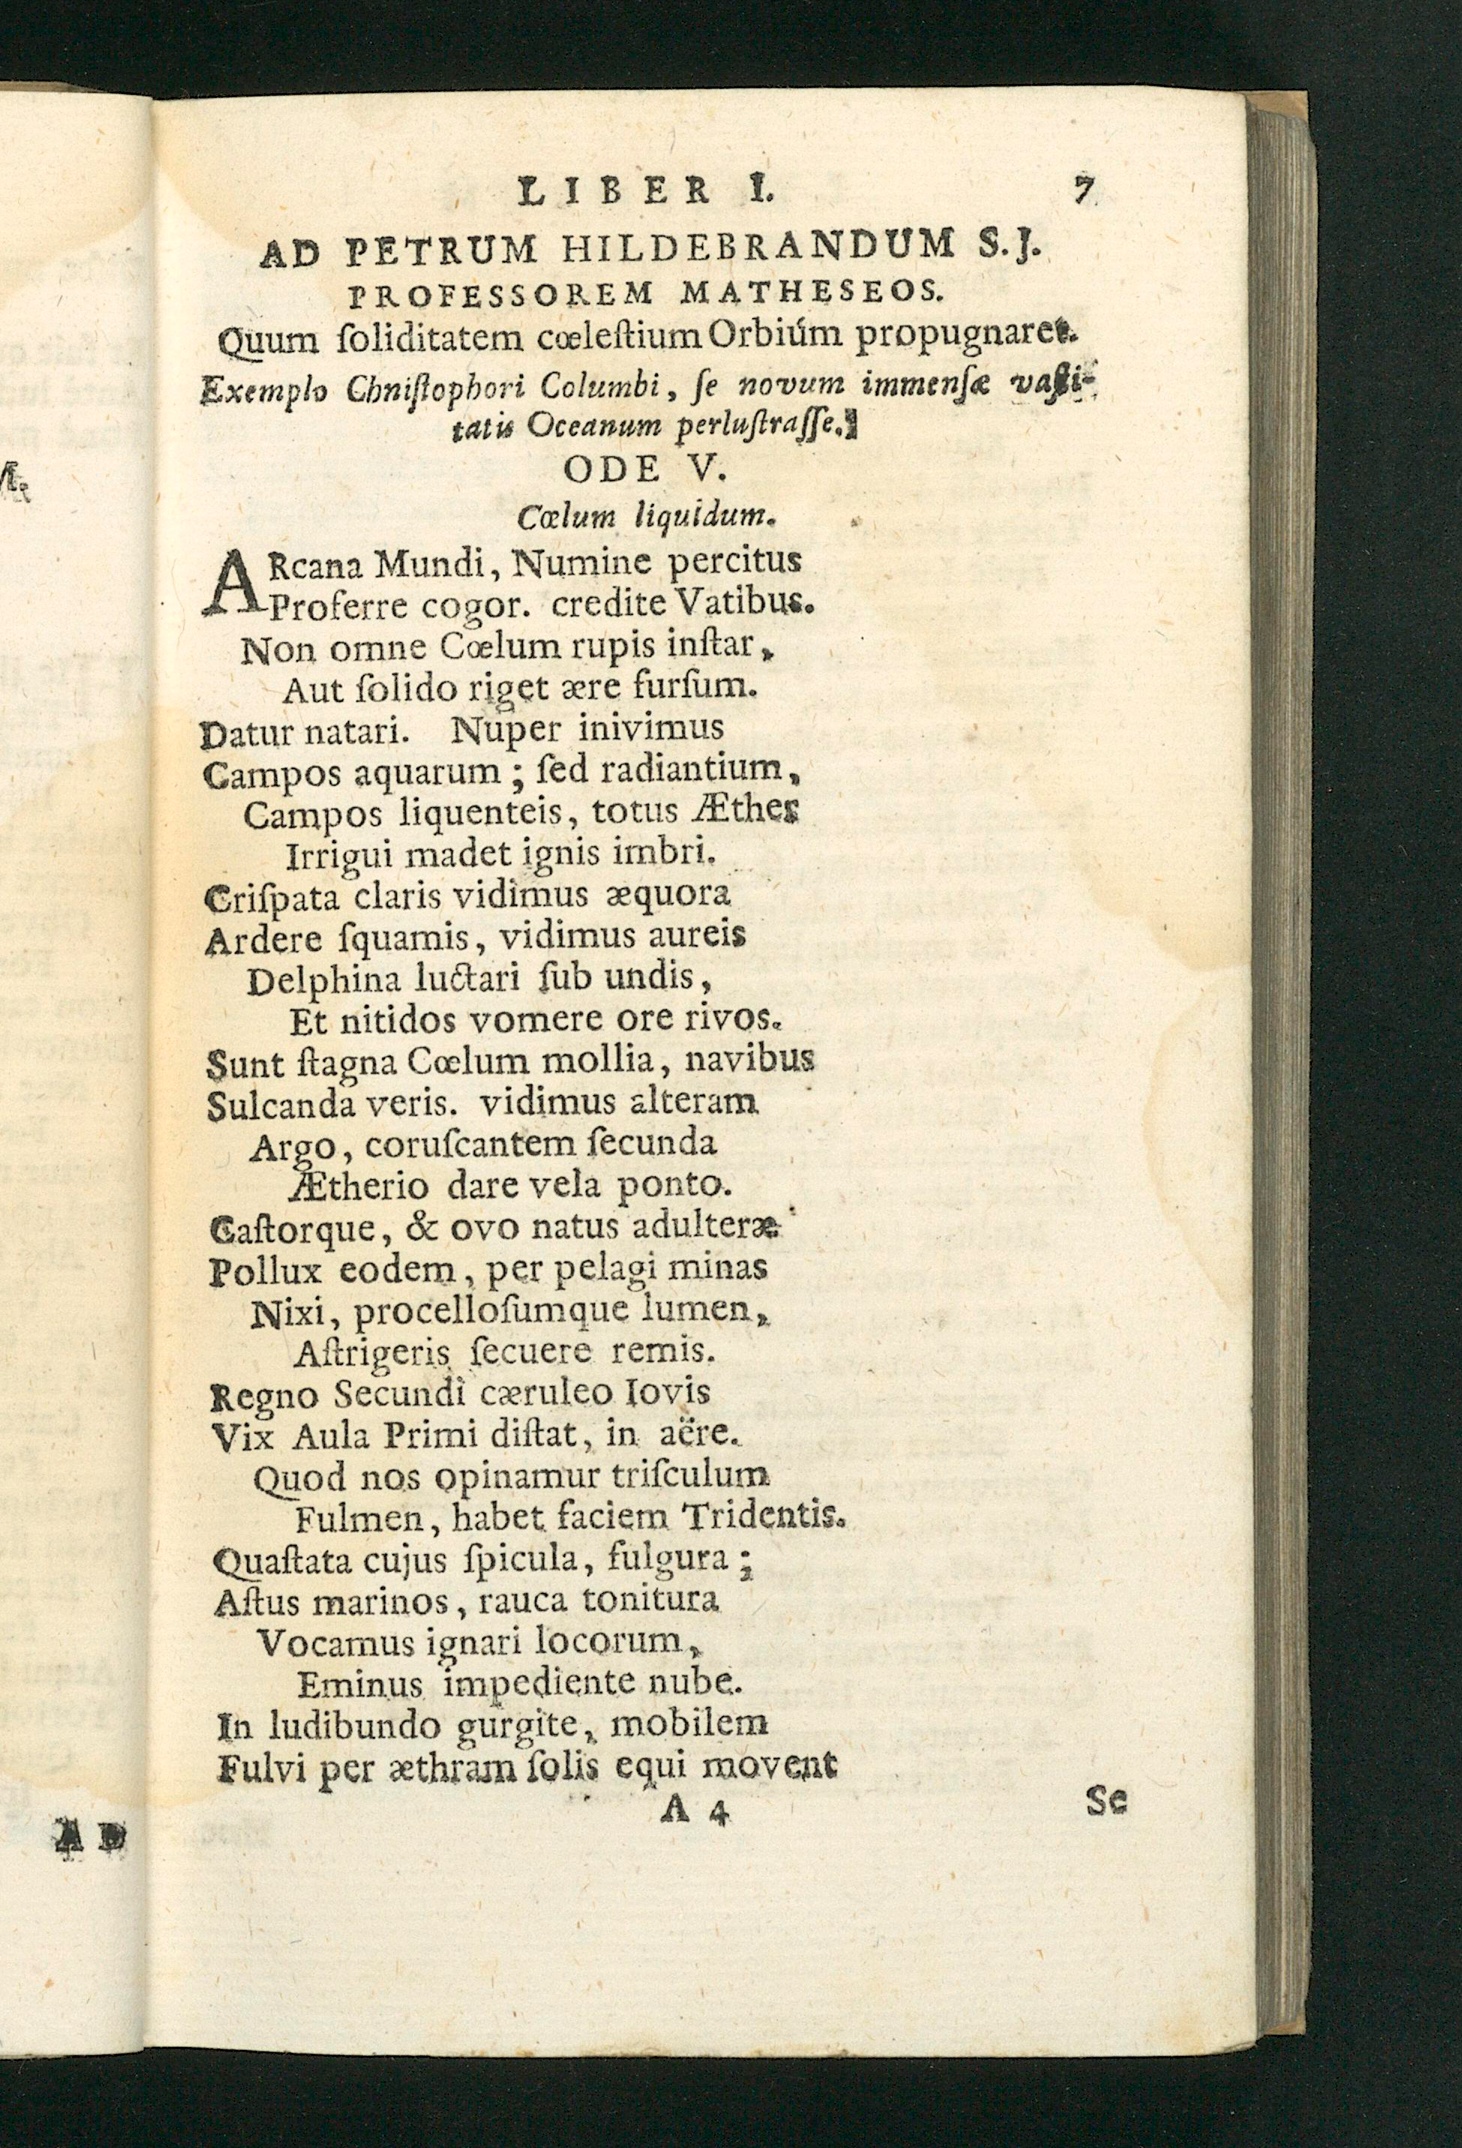 LIBER I. 7
AD PETRUM HILDEBRANDUM S.J.
PROFESSOREM MATHESEOS.
Quum ſoliditatem cœleſtium Orbiúm propugnaret.
Exemplo Chniſtophori Columbi, ſe novum immenſæ vaſti-
tatis Oceanum perluſtraſſe.
ODE V.
Cœlum liquidum.
ARcana Mundi, Numine percitus
Proferre cogor. credite Vatibus.
Non omne Cœlum rupis inſtar,
Aut ſolido riget ære furſum.
Datur natari. Nuper inivimus
Campos aquarum; ſed radiantium,
Campos liquenteis, totus Æther
Irrigui madet ignis imbri.
Criſpata claris vidimus æquora
Ardere ſquamis, vidimus aureis
Delphina luctari ſub undis,
Et nitidos vomere ore rivos.
Sunt ſtagna Cœlum mollia, navibus
Sulcanda veris. vidimus alteram
Argo, coruſcantem ſecunda
Ætherio dare vela ponto.
Caſtorque, & ovo natus adulteræ
Pollux eodem, per pelagi minas
Nixi, procelloſumque lumen,
Aſtrigeris ſecuere remis.
Regno Secundi cæruleo Iovis
Vix Aula Primi diſtat, in aëre.
Quod nos opinamur triſculum
Fulmen, habet faciem Tridentis.
Quaſtata cujus ſpicula, fulgura;
Aſtus marinos, rauca tonitura
Vocamus ignari locorum,
Eminus impediente nube.
In ludibundo gurgite, mobilem
Fulvi per æthram ſolis equi movent
A 4 Se
AD